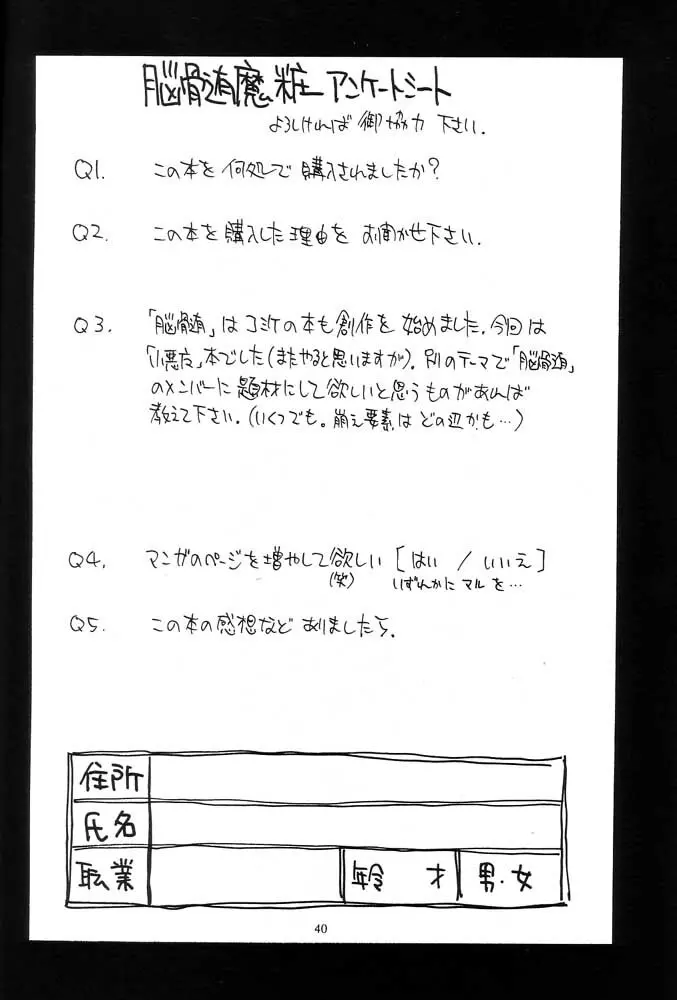 脳骨随魔粧 アンケートシート
よろしければ 御協力 下さい.
Q1. この本を何処で購入されましたか?
Q2. この本を購入した理由を お聞かせ下さい.
Q3. 「脳骨随」はコミケの本も創作を始めました.今回は
「小悪魔」本でした(またやると思いますが).別のテーマで「脳骨随」
のメンバーに題材にして欲しいと思うものがあれば
教えて下さい.(いくつでも。崩え要素はどの辺かも…)
Q4. マンガのページを増やして欲しい [はい / いいえ]
(笑) いずれかに マル を…
Q5. この本の感想など ありましたら.
住所
氏名
職業 年令 才 男・女
40